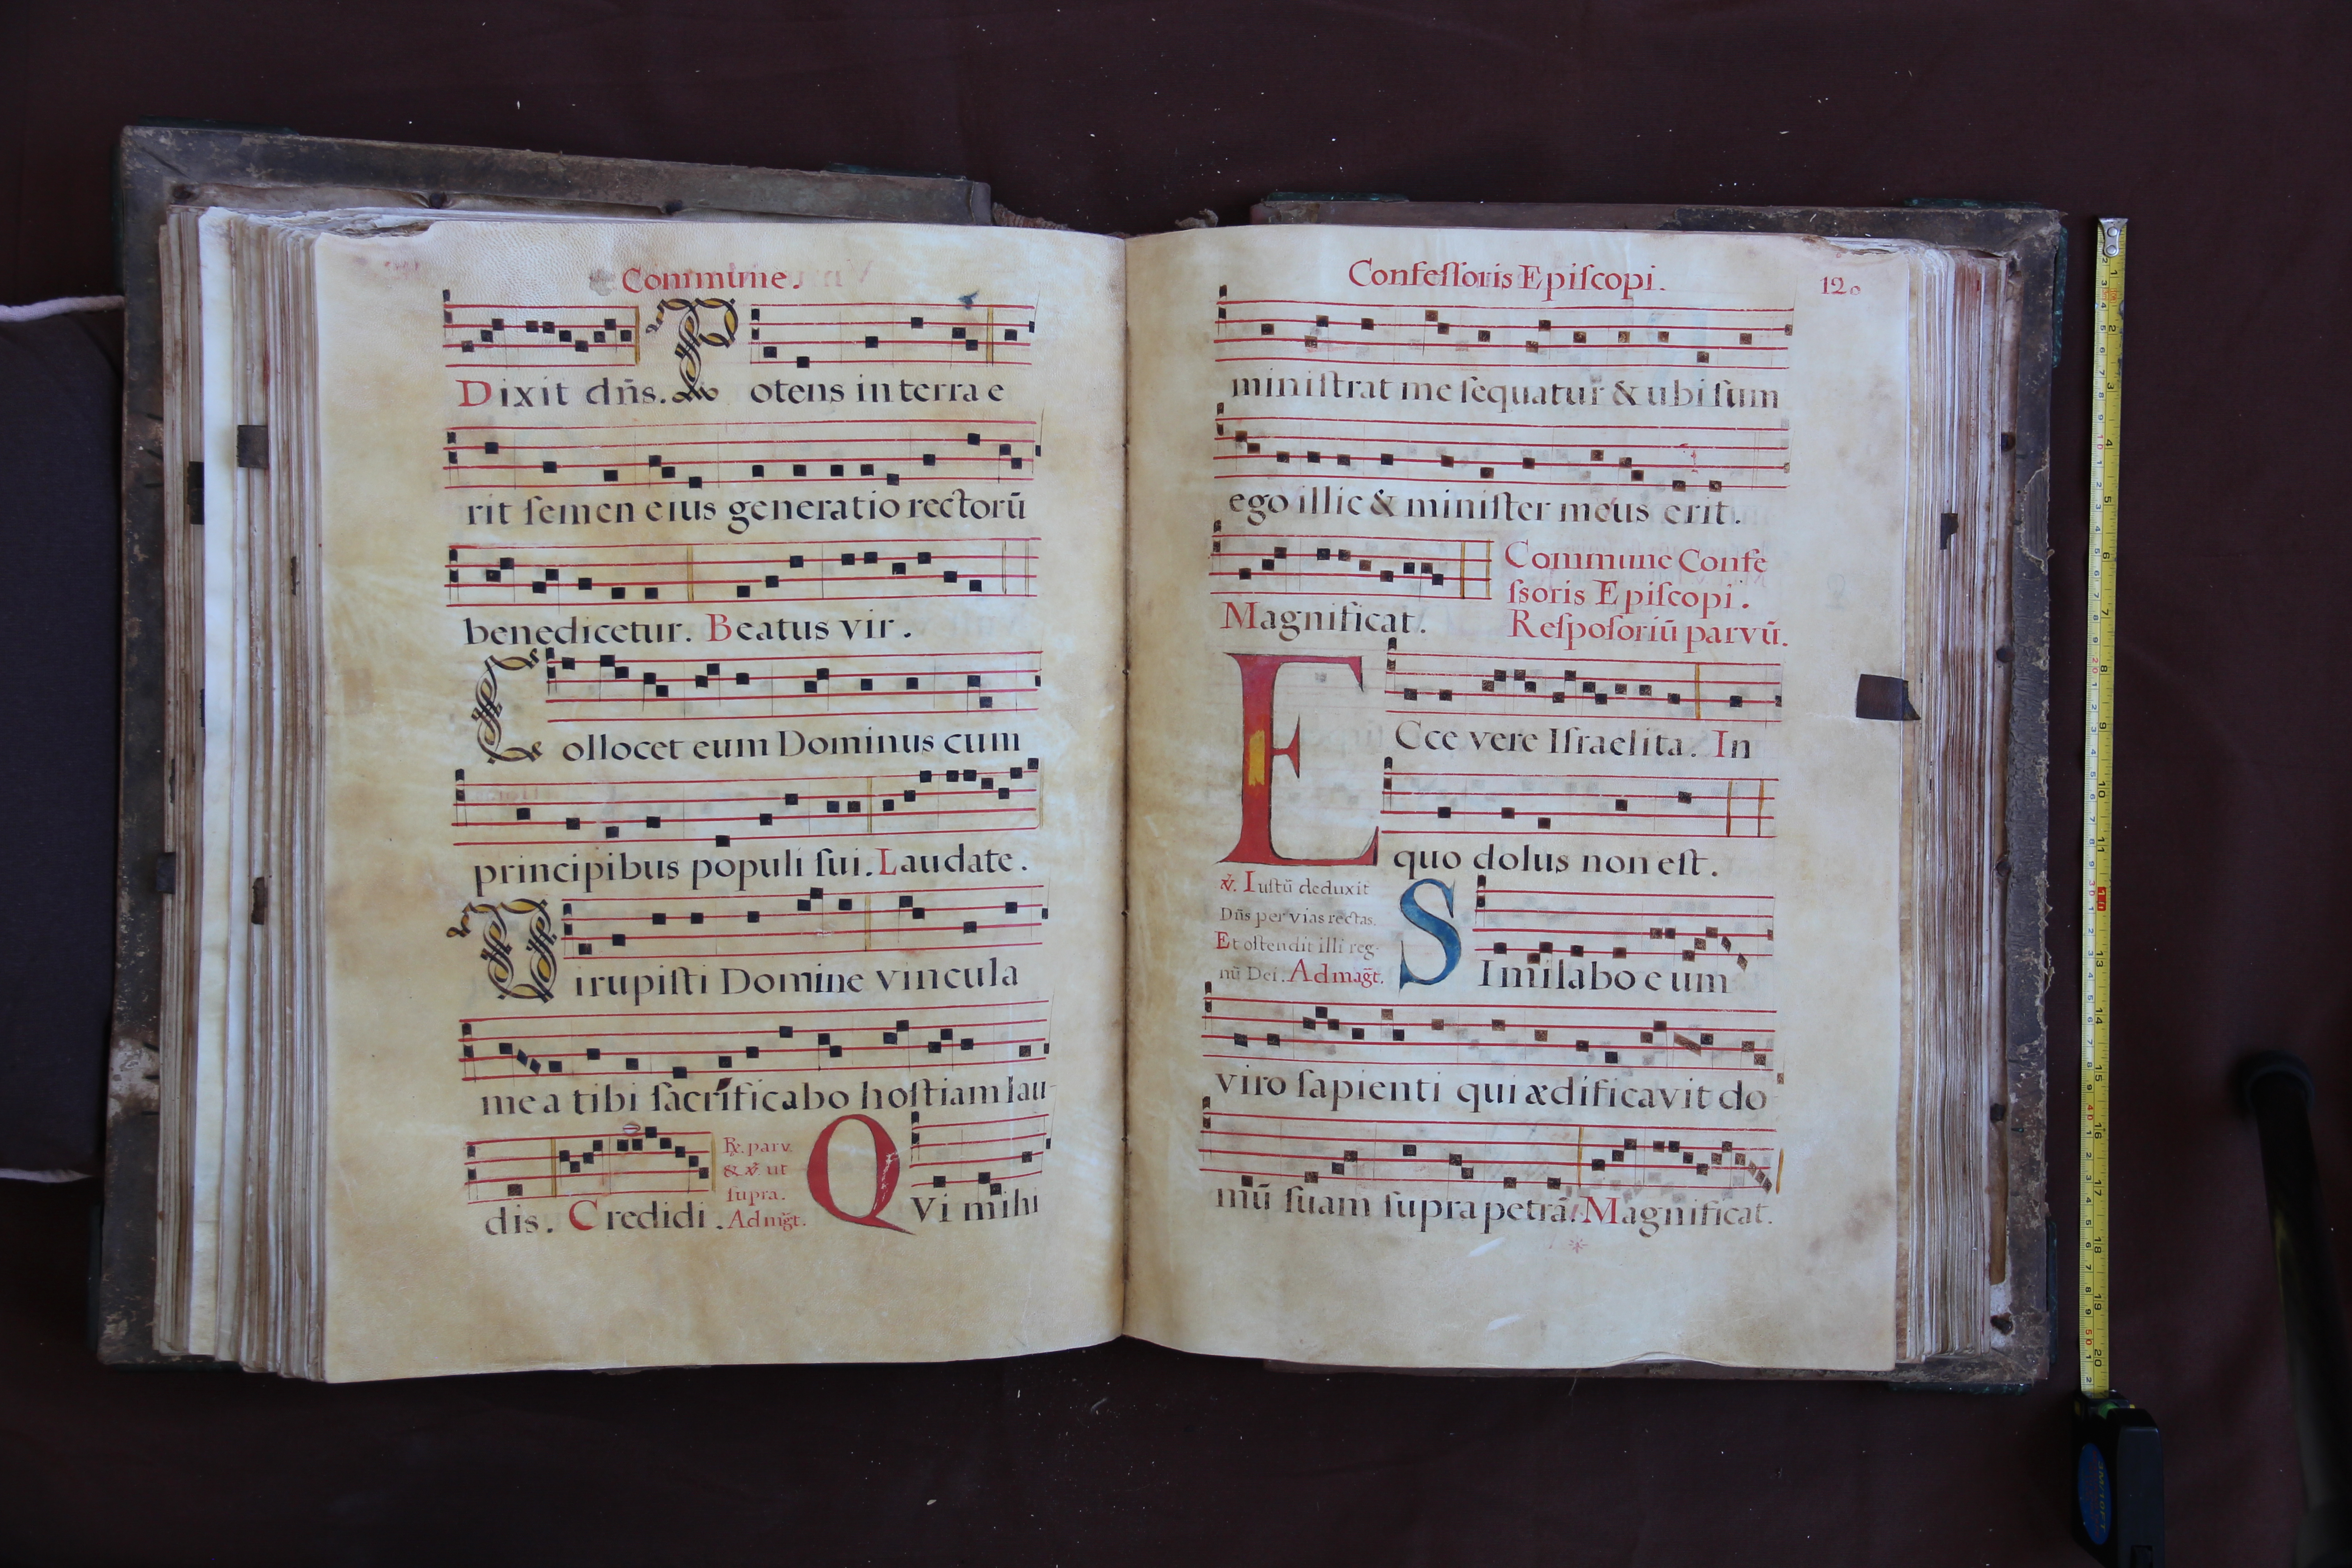 Commune.
Dixit dn̄s. Potens in terra e
rit ſemen eius generatio rectorū
benedicetur. Beatus vir.
Collocet eum Dominus cum
principibus populi ſui. Laudate.
Dirupiſti Domine vincula
mea tibi ſacrificabo hoſtiam lau
dis. Credidi.
℟. parv.
& ℣ ut
ſupra.
Ad mg̃t.
QVi mihi
Confeſſoris Epiſcopi.
120
miniſtrat me ſequatur & ubi ſum
ego illic & miniſter meus erit.
Magnificat.
Commune Confe
ſsoris Epiſcopi.
Reſpoſoriū parvū.
ECce vere Iſraelita. In
quo dolus non eſt.
℣. Iuſtū deduxit
Dn̄s per vias rectas.
Et oſtendit illi reg-
nū Dei. Ad mag̃t.
SImilabo eum
viro ſapienti qui ædificavit do
mū ſuam ſupra petrā. Magnificat.